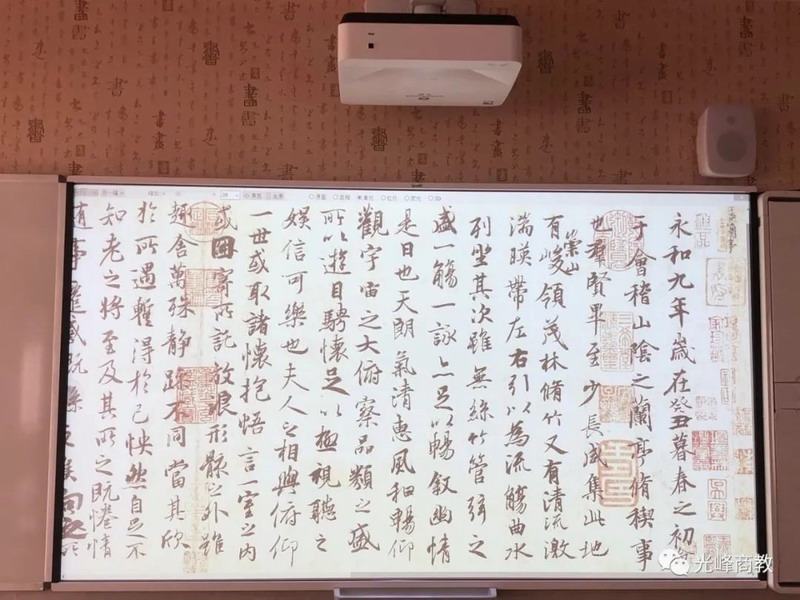 永和九年歲在癸丑暮春之初
于會稽山陰之蘭亭脩稧事
也羣賢畢至少長咸集此地
有崇山峻領茂林脩竹又有清流激
湍暎帶左右引以為流觴曲水
列坐其次雖無絲竹管弦之
盛一觴一詠亦足以暢叙幽情
是日也天朗氣清惠風和暢仰
觀宇宙之大俯察品類之盛
所以遊目騁懷足以極視聽之
娛信可樂也夫人之相與俯仰
一世或取諸懷抱悟言一室之內
或因寄所託放浪形骸之外雖
趣舍萬殊靜躁不同當其欣
於所遇蹔得於己怏然自足不
知老之將至及其所之既惓情
隨事遷感慨係之矣向之所
光峰商教